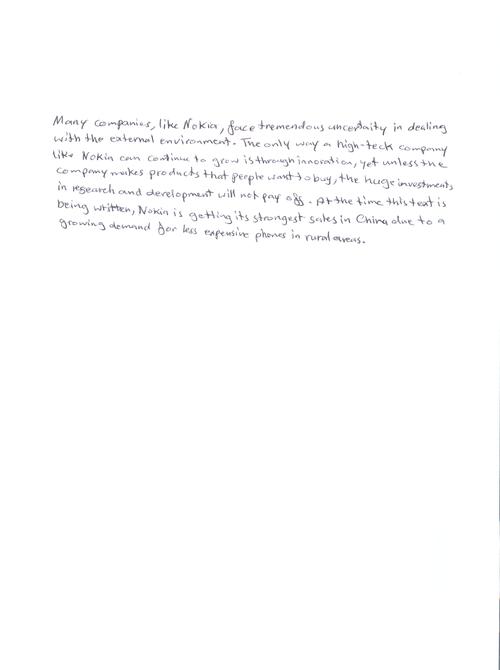 Many companies, like Nokia, face tremendous uncertaity in dealing
with the external environment. The only way a high-teck company
like Nokia can continue to grow is through innovation, yet unless the
company makes products that people want to buy, the huge investments
in research and development will not pay off. At the time this text is
being written, Nokia is getting its strongest sales in China due to a
growing demand for less expensive phones in rural areas.